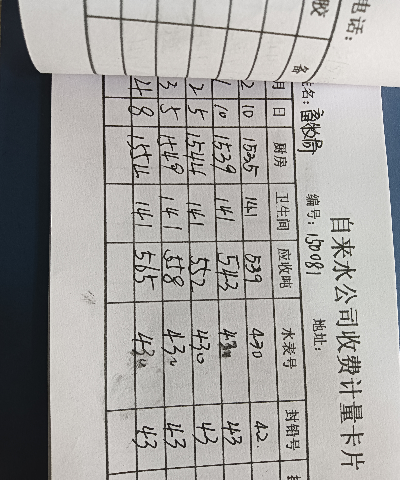 电话：
胶
备
自来水公司收费计量卡片
姓名：畜牧局 编号：130081 地址：
月 日 厨房 卫生间 应收吨 水表号 封铅号
2 10 1535 141 539 430 42
1 10 1539 141 542 430 43
2 5 1544 141 552 430 43
3 5 1549 141 558 430 43
4 8 1554 141 565 430 43